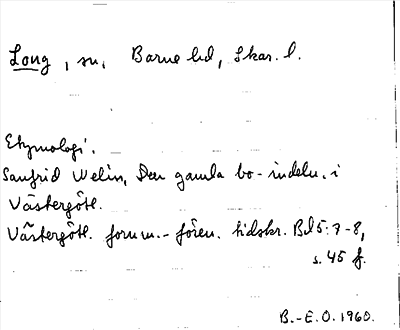 Long, sn, Barne hd, Skar. l.
Etymologi.
Sanfrid Welin, Den gamla bo-indeln. i
Västergötl.
Västergötl. fornm.-fören. tidskr. Bd 5:7-8,
s. 45 f.
B.-E.O. 1960.